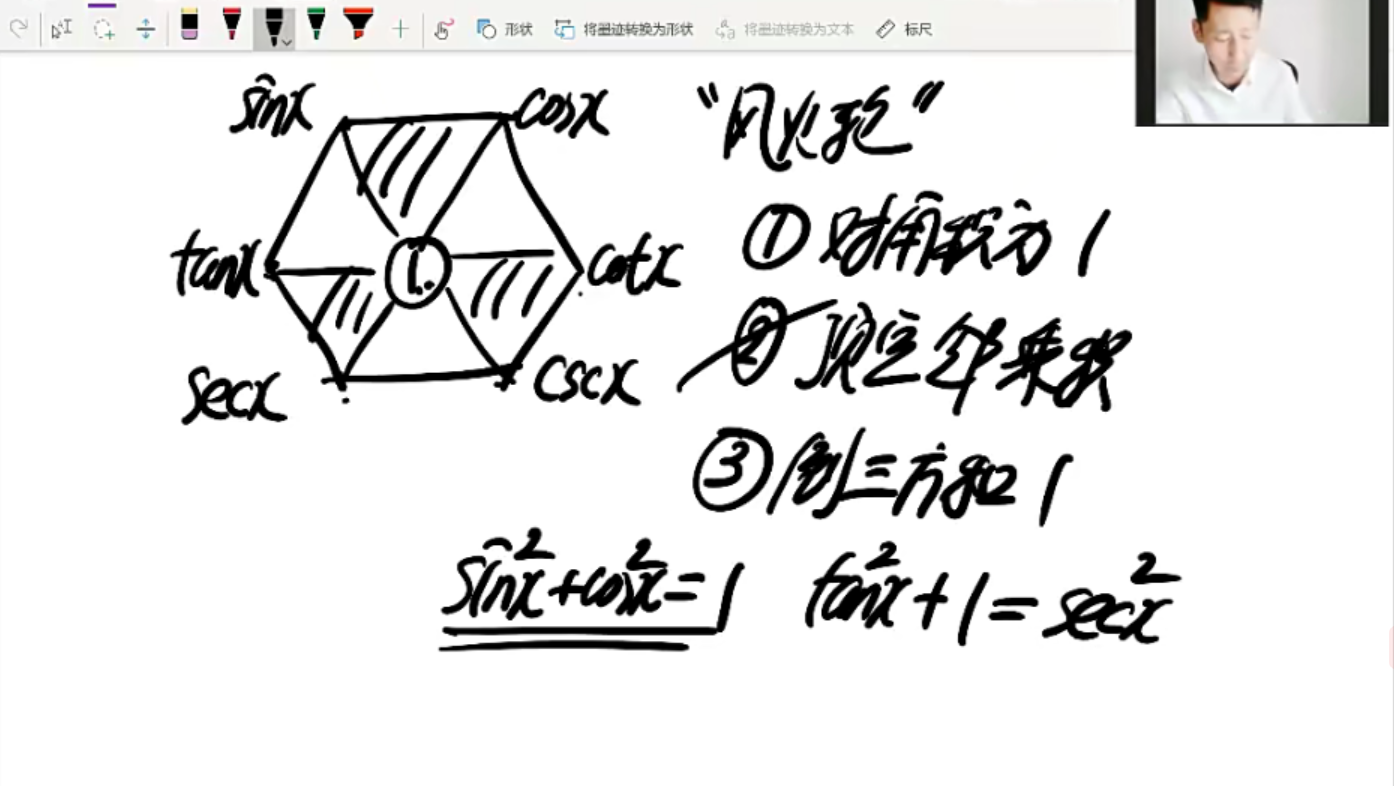 形状 将墨迹转换为形状 将墨迹转换为文本 标尺
sinx cosx
tanx 1. cotx
secx cscx
“风火轮”
① 对角积为 1
② 顶定邻乘积
③ 倒三方和 1
sin²x+cos²x=1 tan²x+1=sec²x